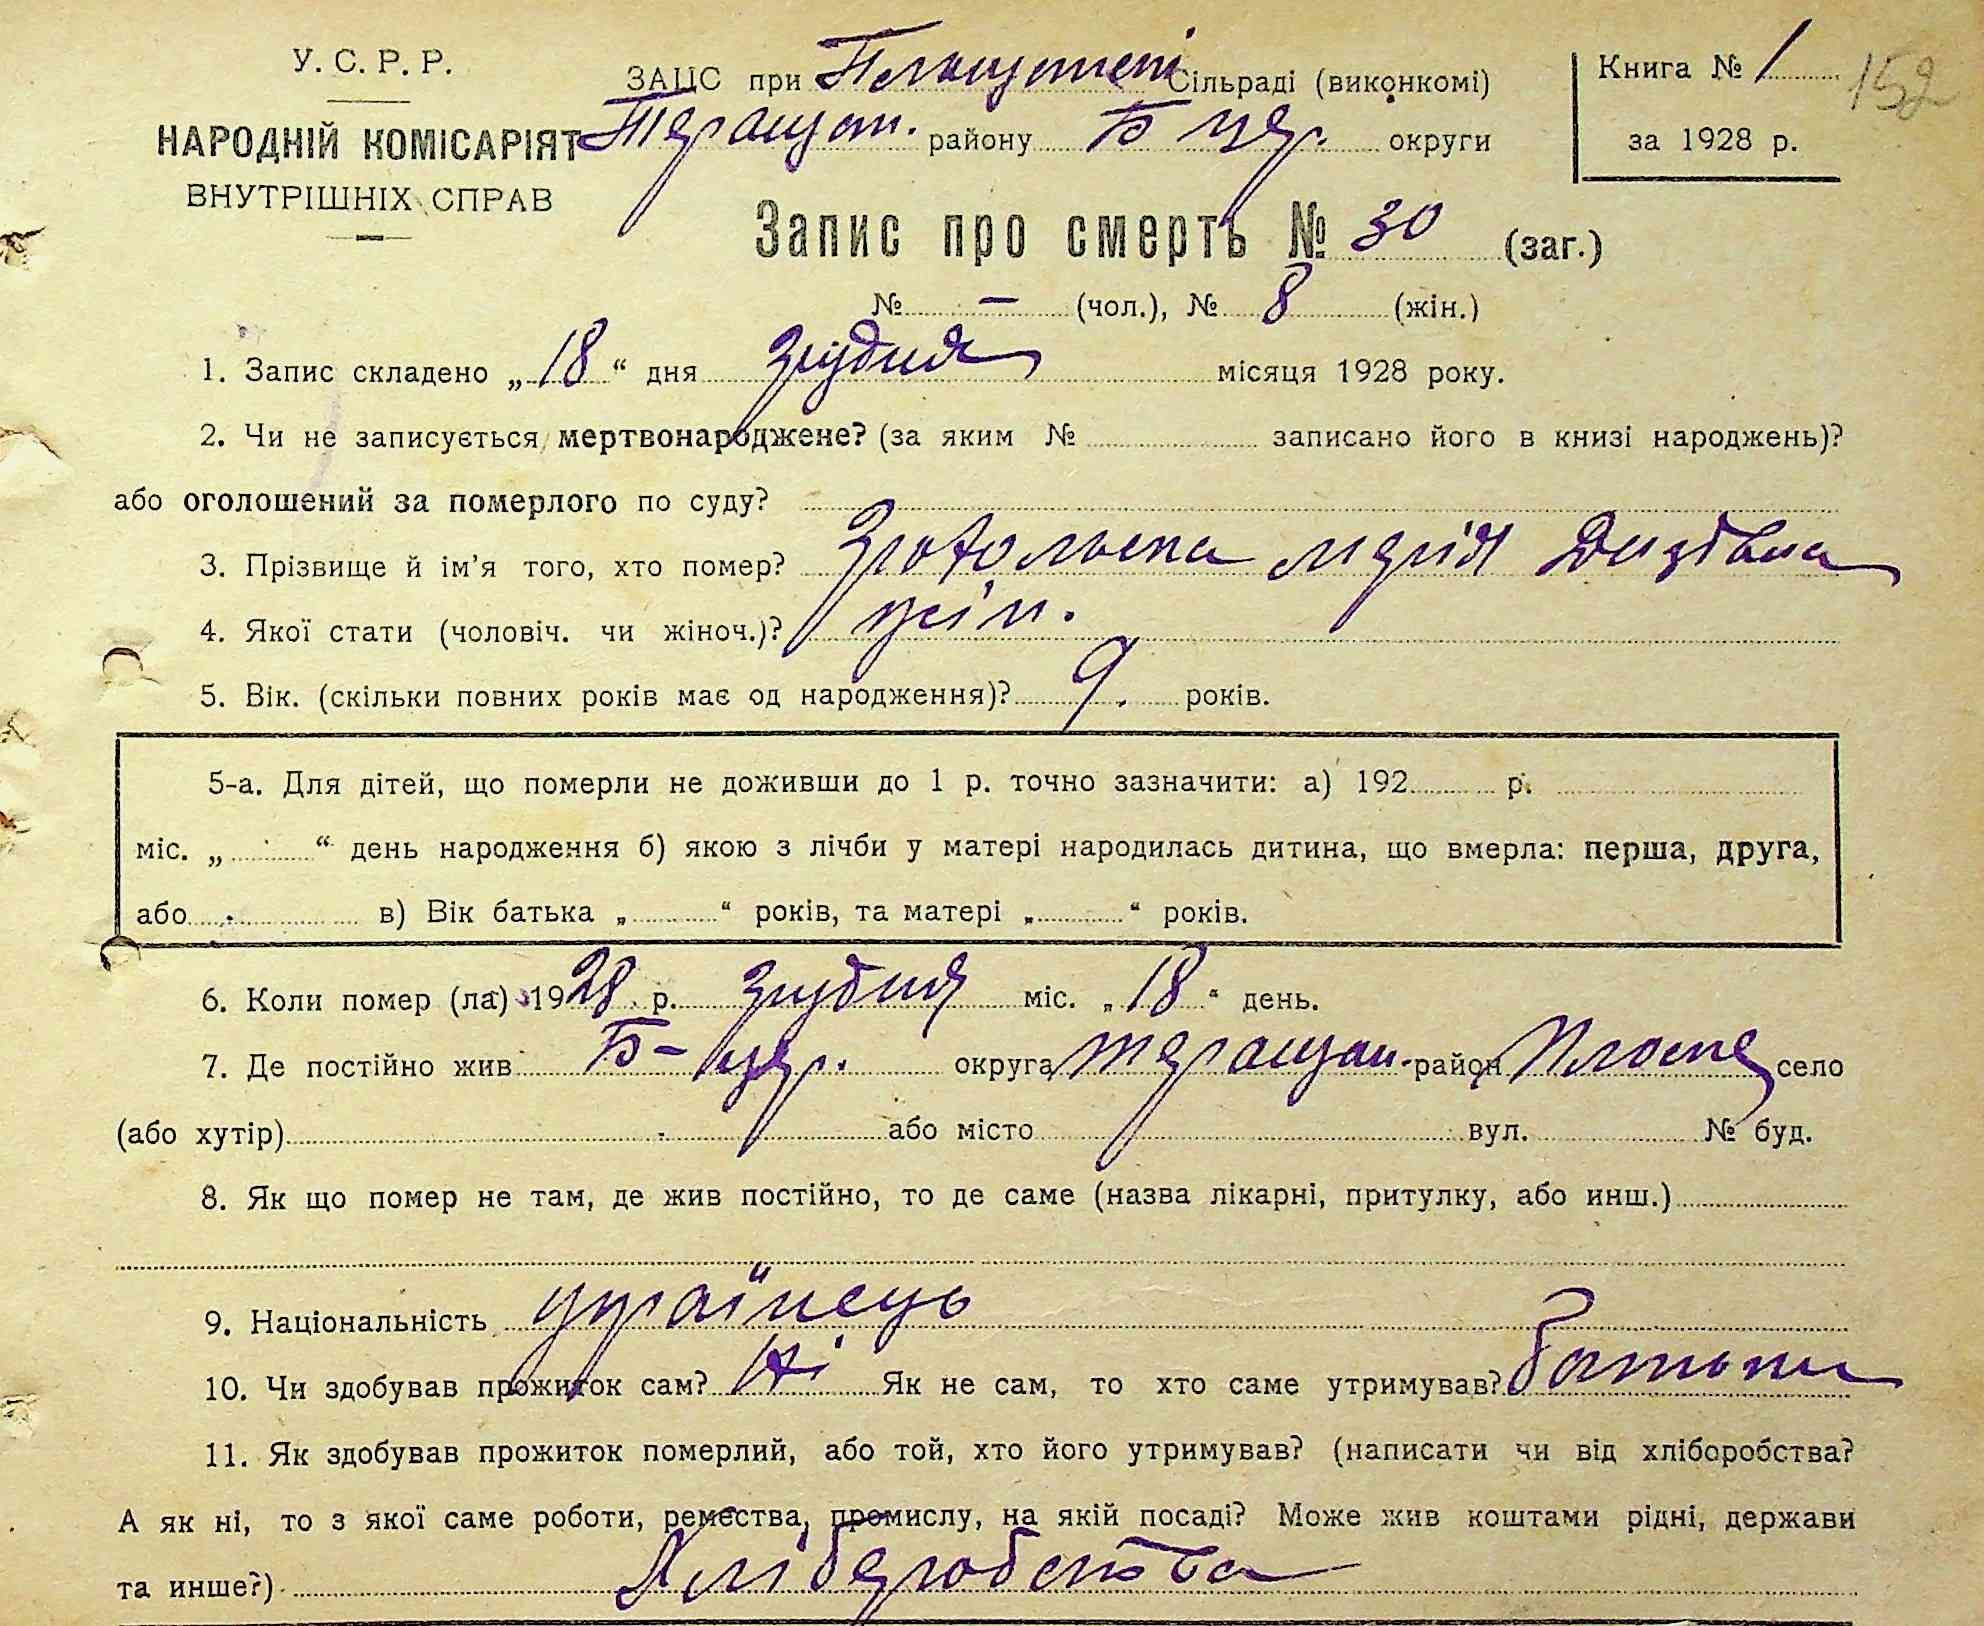 У. С. Р. Р.
НАРОДНІЙ КОМІСАРІЯТ
ВНУТРІШНІХ СПРАВ
ЗАЦС при Сільраді (виконкомі)
Таращан. району Б цер. округи
Книга № 1
за 1928 р.
152
Запис про смерть № 30 (заг.)
№ — (чол.), № 8 (жін.)
1. Запис складено „18“ дня грудня місяця 1928 року.
2. Чи не записується мертвонароджене? (за яким № записано його в книзі народжень)?
або оголошений за померлого по суду?
3. Прізвище й ім'я того, хто помер? Марія
4. Якої стати (чоловіч. чи жіноч.)? жін.
5. Вік. (скільки повних років має од народження)? 9. років.
5-а. Для дітей, що померли не доживши до 1 р. точно зазначити: а) 192 р.
міс. „ “ день народження б) якою з лічби у матері народилась дитина, що вмерла: перша, друга,
або в) Вік батька „ “ років, та матері „ “ років.
6. Коли помер (ла) 1928 р. грудня міс. „18“ день.
7. Де постійно жив Б-цер. округа Таращан. район Плоске село
(або хутір) або місто вул. № буд.
8. Як що помер не там, де жив постійно, то де саме (назва лікарні, притулку, або инш.)
9. Національність українець
10. Чи здобував прожиток сам? Ні Як не сам, то хто саме утримував? батьки
11. Як здобував прожиток померлий, або той, хто його утримував? (написати чи від хліборобства?
А як ні, то з якої саме роботи, ремества, промислу, на якій посаді? Може жив коштами рідні, держави
та инше?) Хліборобства